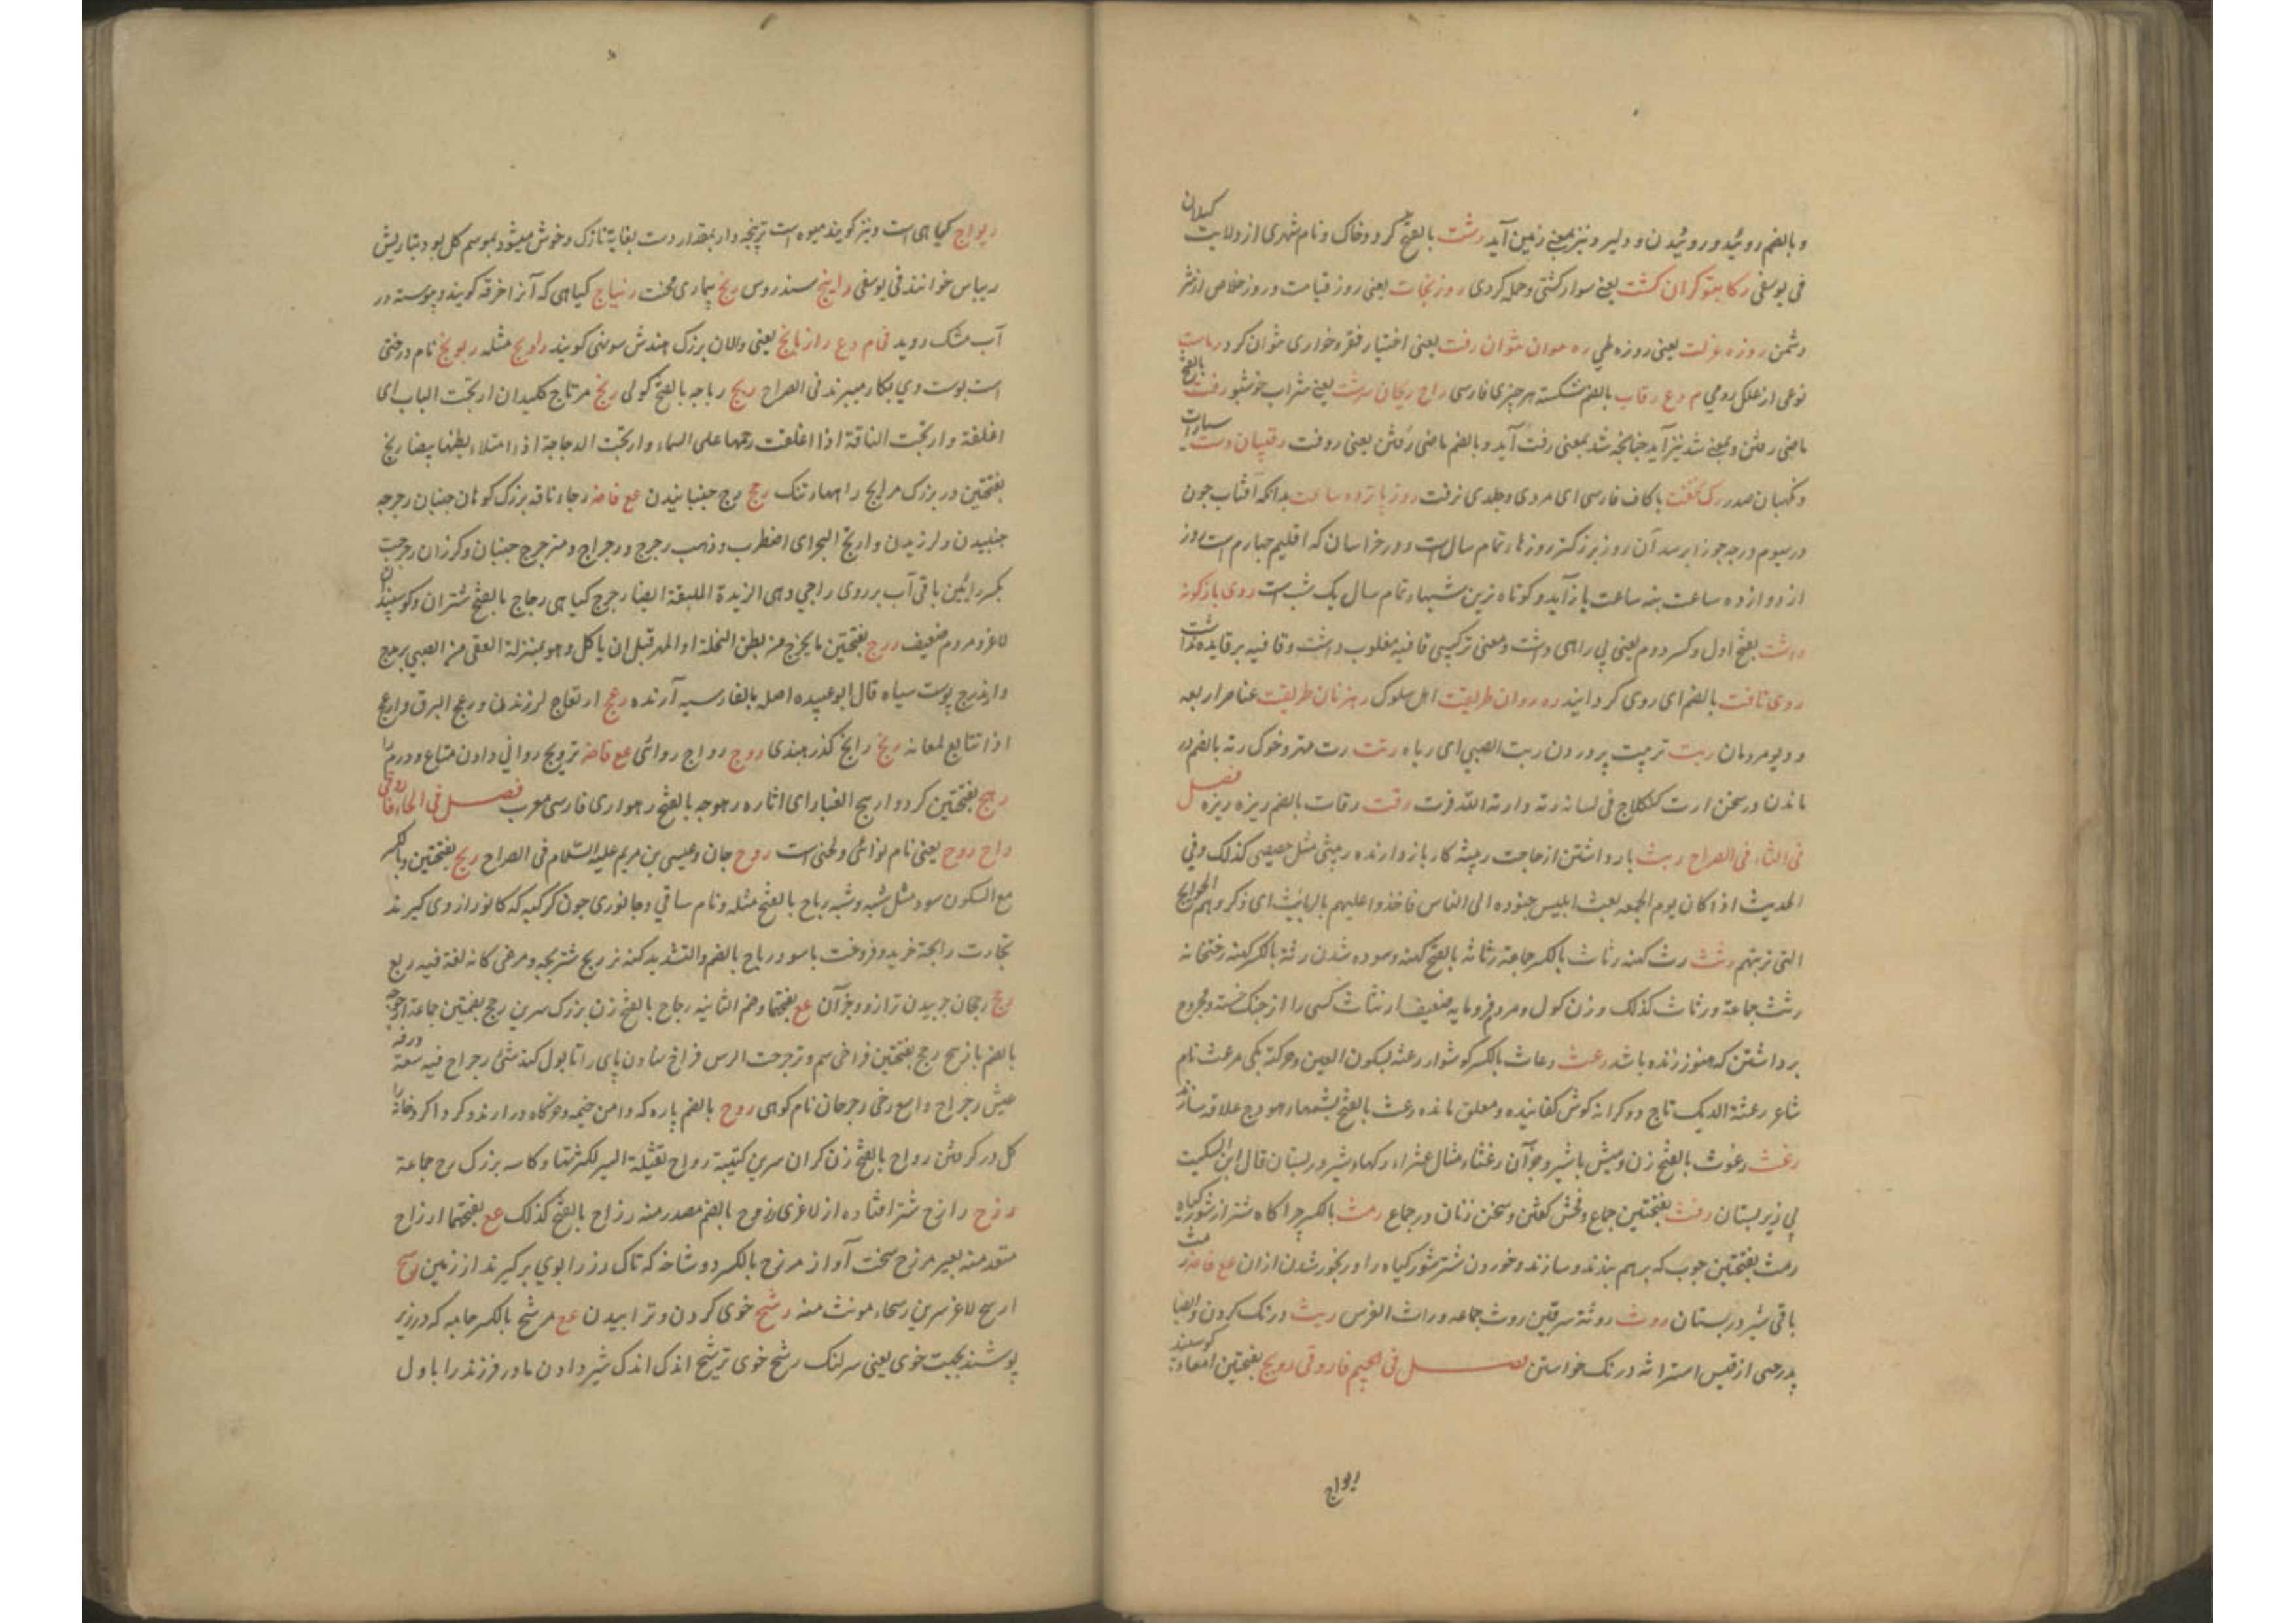 و بالضم روئید و روئیدن و دلیر و نیز بمعنی زمین آید رشت بالفتح کرد و خاک و نام شهری از ولایت کیلان
فی یوسفی رکاب تو کران کشت یعنی سوار کشتی و حمله کردی روز نجات یعنی روز قیامت و روز خلاص از شر
دشمن روزه عزلت یعنی روزه طی یعنی اختیار فقر و خواری متوان کرد
نوعی از علک رومی م دع رقاب بالضم شکسته هر چیزی فارسی راح ریحان سرشت یعنی شراب خوشبو رفت بالفتح
ماضی رفتن و بمعنی شد نیز آید چنانچه شد بمعنی رفت آید و بالضم ماضی رُفتن یعنی روفت
و نکهبان صدر باکاف فارسی ای مردی و جلدی نرفت روز پانزده ساعت بدانکه آفتاب چون
در سیوم درجه جوزا برسد آن روز بزرکتر روزها تمام سال است و در خراسان که اقلیم چهارم است روز
از دوازده ساعت بنه ساعت باز آید و کوتاه ترین شبها تمام سال یک شب است روی بازکونه
داشت بفتح اول و کسر دوم یعنی پی راهی داشت و معنی ترکیبی قافیه مغلوب داشت و قافیه برقاعده نداشت
روی تافت بالضم ای روی کردانید ره روان طریقت اهل سلوک رهزنان طریقت عناصر اربعه
و دیو مردمان ربت تربیت پروردن ربت الصبی ای رباه رتت رت مهتر و خوک رته بالضم در
ماندن در سخن ارت فی لسانه رته وارته الله فرت رفت رفات بالضم ریزه ریزه فصل
فی الثاء فی الصراح ربث بازداشتن از حاجت ربیثه کار بازدارنده ربیثی مثل خصیصی کذلک وفی
الحدیث اذا کان یوم الجمعه بعث ابلیس جنوده الی الناس فاخذوا علیهم بالربائث ای ذکروهم الحوایج
التی تربثهم رثث رث کهنه رثاث بالکسر جماعة رثاثه بالفتح کهنه و سوده شدن رثة بالکسر کهنه رختخانه
رثث جماعة ورثاث کذلک و زن کول و مردم فرومایه ضعیف ارتثاث کسی را از جنک خسته و مجروح
برداشتن که هنوز زنده باشد رعث رعاث بالکسر کوشوار رعثه بسکون العین و حرکته یکی مرعث نام
شاعر رعثة الدیک تاج دو کرانه کوش کفانیده و معلق مانده رعث بالفتح پشمها هودج علاقه سازند
رغث رغوث بالفتح زن و میش با شیر و جز آن رغثاء مثال عشراء رکها شیر در پستان قال ابن السکیت
پی زیر پستان رفث بفتحتین جماع و فحش کفتن و سخن زنان در جماع رمث بالکسر چراکاه شتر از شور کیاه
رمث بفتحتین چوب که بهم بندند و سازند و خوردن شتر شور کیاه را و رنجور شدن از آن مع فاضه
باقی شیر در پستان روث روثة سرقین روث جماعه وراث الفرس ریث درنک کردن و ایضا
پدر حی از قیس استراثه درنک خواستن فصل فی الجیم فاروقی ردج بفتحتین امعاء کوسفند
ریواج
ریواج کیاهی است و نیز کویند میوه است پنجه دار بمقدار دست بغایة نازک و خوش میشود بموسم کل بود بتاریش
ریباس خوانند فی یوسفی راینج سندروس رنج بیماری محنت رنیاج کیاهی که آنرا خرقه کویند و پیوسته در
آب خشک روید فی م دع رازیانج یعنی والان بزرک هندش سونی کویند راویج مثله ریونج نام درختی
است پوست وی بکار میبرند فی الصراح ربج رباجه بالفتح کولی رتج مرتاج کلیدان ارتجت الباب ای
اغلقته وارتجت الناقة اذا اغلقت رحمها علی الماء وارتجت الدجاجة اذا امتلاء بطنها بیضا رتج
بفتحتین در بزرک مراتج راهها تنک رجج رج جنبانیدن مع فاضه رجاء ناقه بزرک کوهان جنبان رجرجه
جنبیدن و لرزیدن وارتج البحر ای اضطرب و ذهب رجرج ورجراج و مترجرج جنبان و کرزان رجرجت
بکسر رائین باقی آب بر روی راجی وهی الزیدة الملبقة ایضا رجرج کیاهی رجاج بالفتح شتران و کوسپندان
لاغر و مردم ضعیف ردج بفتحتین ما یخرج من بطن النخلة او المهر قبل ان یاکل وهو بمنزلة العقی من الصبی یرندج
وارندج پوست سیاه قال ابو عبیده اصله بالفارسیه آرنده رعج ارتعاج لرزیدن و رعج البرق وارعج
اذا تتابع لمعانه رنج رانج کذر هندی روج رواج روائی مع فاضه ترویج روانی دادن متاع و درم را
رهج بفتحتین کرد و ارهج الغبار ای اثاره رهوجه بالفتح رهواری فارسی معرب فصل فی الحاء فاروقی
راح روح یعنی نام نوائی و لحنی است روح جان و عیسی بن مریم علیه السلام فی الصراح ربح بفتحتین و بالکسر
مع السکون سود مثل شبه و شبه رباح بالفتح مثله و نام ساقی و جانوری چون کرکبه که کافور از وی کیرند
تجارت رابحة خرید و فروخت باسود رباح بالضم والتشدید کپنه نر ربح شتربچه و مرغی کانه لغة فیه ربع
رجح رجحان چربیدن ترازو و جز آن مع بفتحهما وضم الثانیه رجاح بالفتح زن بزرک سرین رجح بضمتین جماعة
بالضم رحح بفتحتین فراخی سم و ترجرحت الفرس فراخ نهادن پای را تا بول کند شئ رحراح فیه سعة ورقه
عیش رحراح واسع رخی رحرحان نام کوهی ردح بالضم پاره که دامن خیمه و خرکاه در آرند
کل در کرفتن رداح بالفتح زن کران سرین کتیبة رداح ثقیلة السیر لکثرتها و کاسه بزرک ردح جماعة
رزح رازح شتر افتاده از لاغری رزوح بالضم مصدر منه رزاح بالفتح کذلک مع بفتحهما ارزاح
متعد منه بعیر مرزح سخت آواز مرزح بالکسر دو شاخه که تاک رز را بوی برکیرند از زمین رسح
ارسح لاغر سرین رسحاء مونث منه رشح خوی کردن و ترابیدن مع مرشح بالکسر جامه که در زیر
پوشند بجهت خوی یعنی سرلنک رشح خوی ترشح اندک اندک شیر دادن مادر فرزند را باول